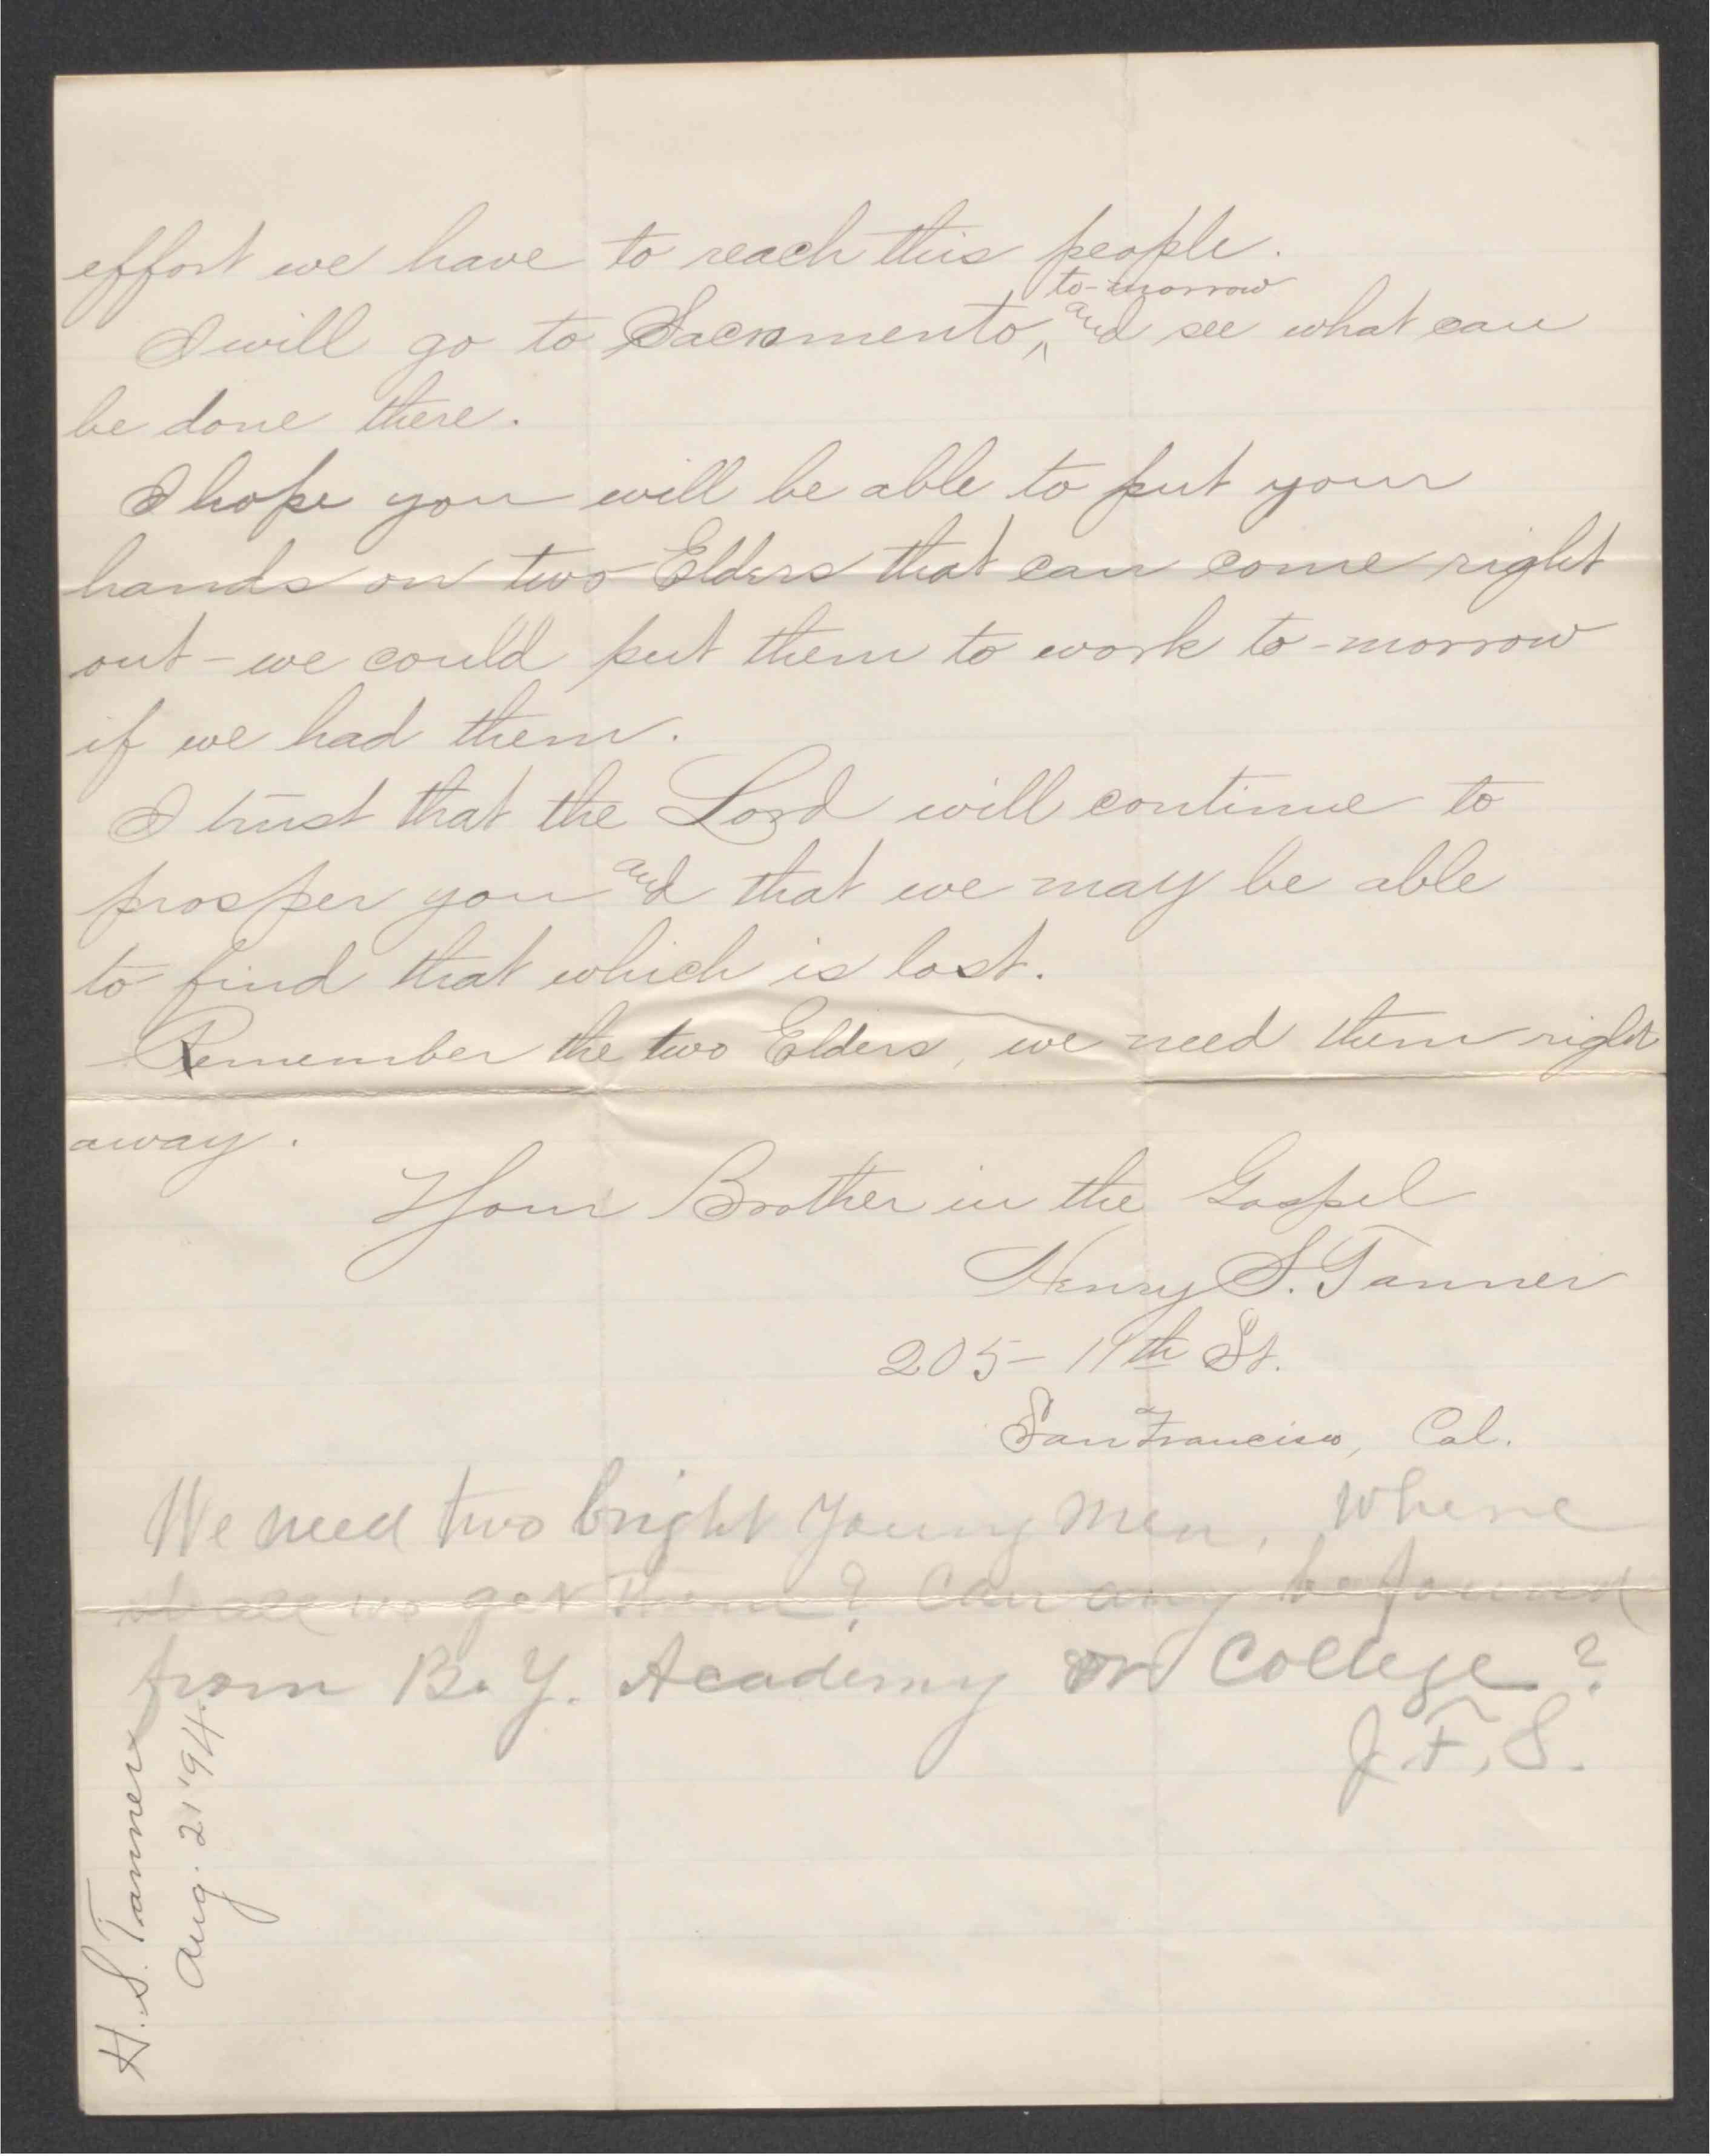 effort we have to reach this people.
I will go to Sacramento, ^ to-morrow and see what can
be done there.
I hope you will be able to put your
hands on two Elders that can come right
out - we could put them to work to-morrow
if we had them.
I trust that the Lord will continue to
prosper you and that we may be able
to find that which is lost.
Remember the two Elders, we need them right
away.
Your Brother in the Gospel
Henry S. Tanner
205 - 11th St.
San Francisco, Cal.
We need two bright young men. Where
shall we get them? Can any be found
from B. Y. Academy or College?
J. F. S.
H. S. Tanner
Aug. 21 '94.